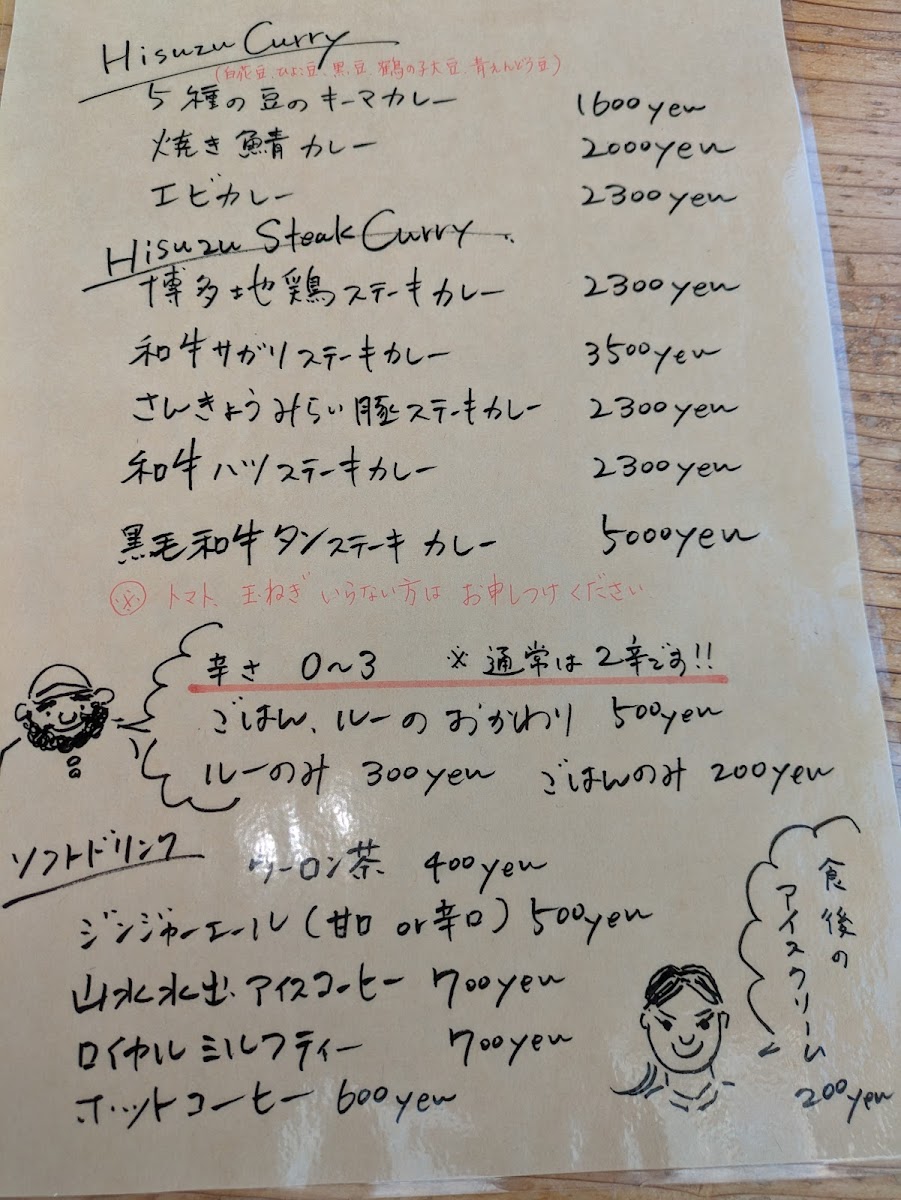 Hisuzu Curry
(白花豆、ひよこ豆、黒豆、鶴の子大豆、青えんどう豆)
5種の豆のキーマカレー 1600yen
焼き鯖カレー 2000yen
エビカレー 2300yen
Hisuzu Steak Curry
博多地鶏ステーキカレー 2300yen
和牛サガリステーキカレー 3500yen
さんきょうみらい豚ステーキカレー 2300yen
和牛ハツステーキカレー 2300yen
黒毛和牛タンステーキカレー 5000yen
※ トマト、玉ねぎいらない方はお申しつけください
辛さ 0〜3 ※通常は2辛です!!
ごはん、ルーのおかわり 500yen
ルーのみ 300yen ごはんのみ 200yen
ソフトドリンク
ウーロン茶 400yen
ジンジャーエール(甘口 or 辛口) 500yen
山水水出アイスコーヒー 700yen
ロイヤルミルクティー 700yen
ホットコーヒー 600yen
食後の
アイスクリーム
200yen